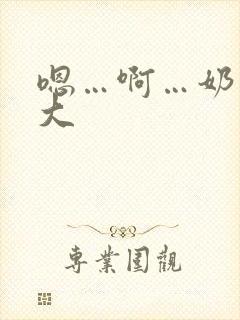 嗯…啊…奶
大
專業圍觀